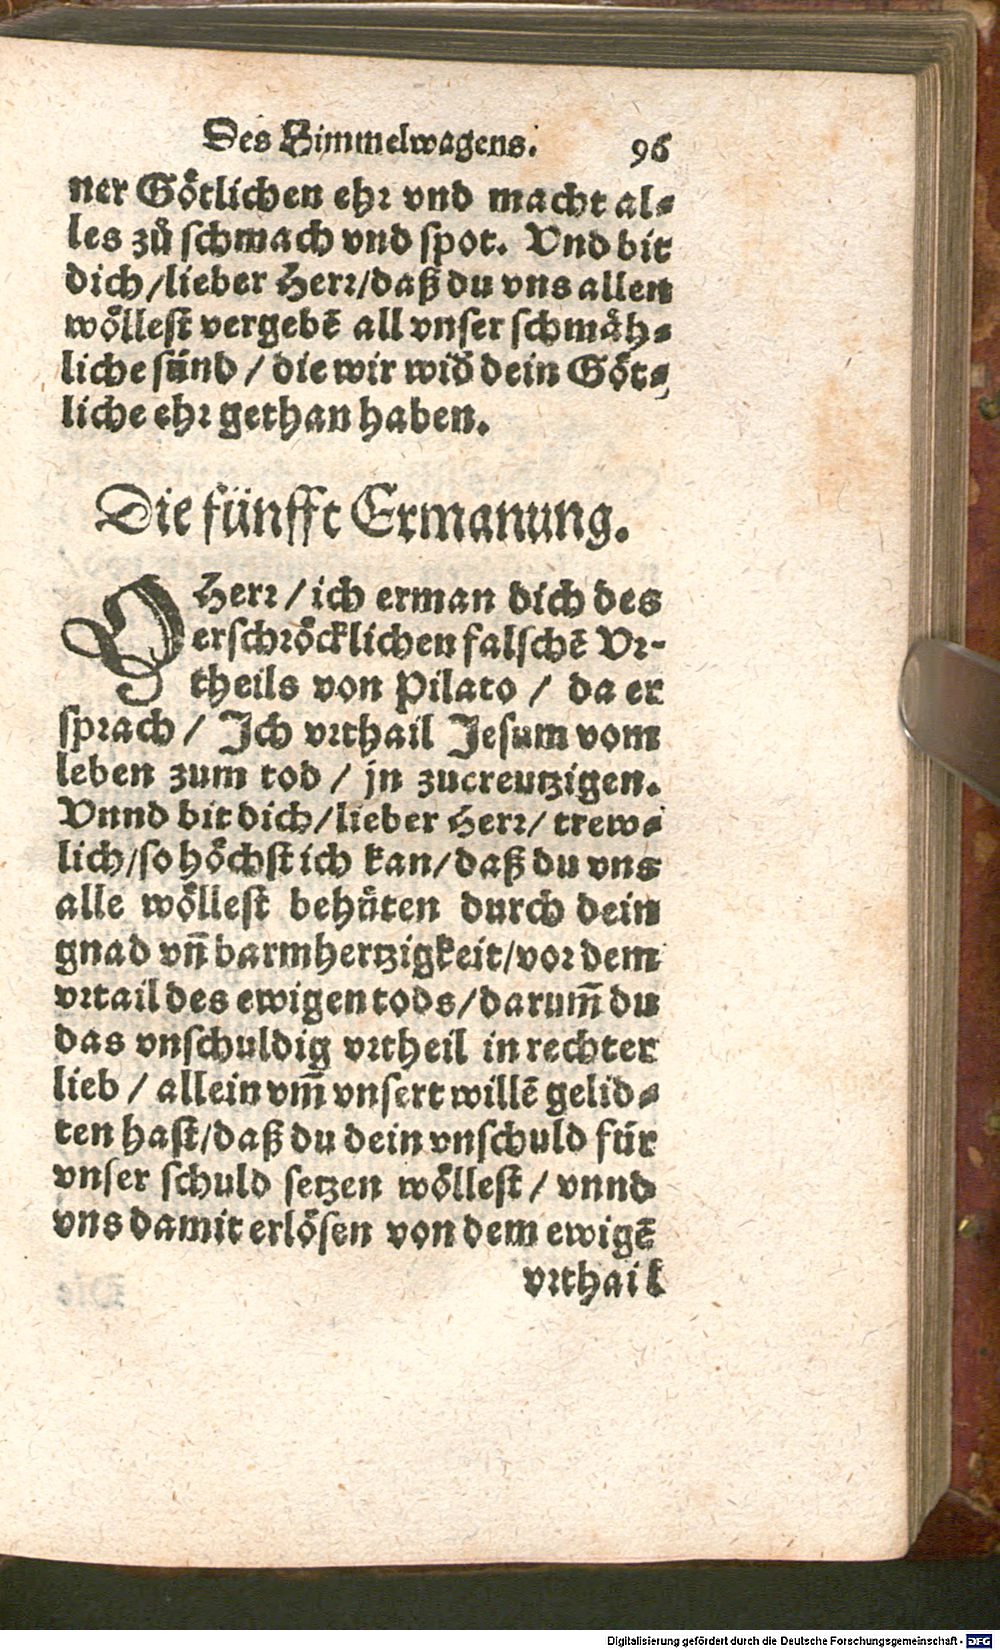 Des Himmelwagens. 96
ner Götlichen ehr vnd macht al-
les zů schmach vnd spot. Vnd bit
dich/lieber Herr/daß du vns allen
wöllest vergebē all vnser schmäh-
liche sünd / die wir wid̄ dein Göt-
liche ehr gethan haben.
Die fünfft Ermanung.
O Herr / ich erman dich des
erschröcklichen falschē Vr-
theils von Pilato / da er
sprach / Ich vrthail Jesum vom
leben zum tod / jn zucreutzigen.
Vnnd bit dich/lieber Herr/ trew-
lich/so höchst ich kan/daß du vns
alle wöllest behüten durch dein
gnad vñ barmhertzigkeit/vor dem
vrtail des ewigen tods/darum̄ du
das vnschuldig vrtheil in rechter
lieb / allein vm̄ vnsert willē gelid-
ten hast/daß du dein vnschuld für
vnser schuld setzen wöllest / vnnd
vns damit erlösen von dem ewigē
vrthail
Digitalisierung gefördert durch die Deutsche Forschungsgemeinschaft - DFG